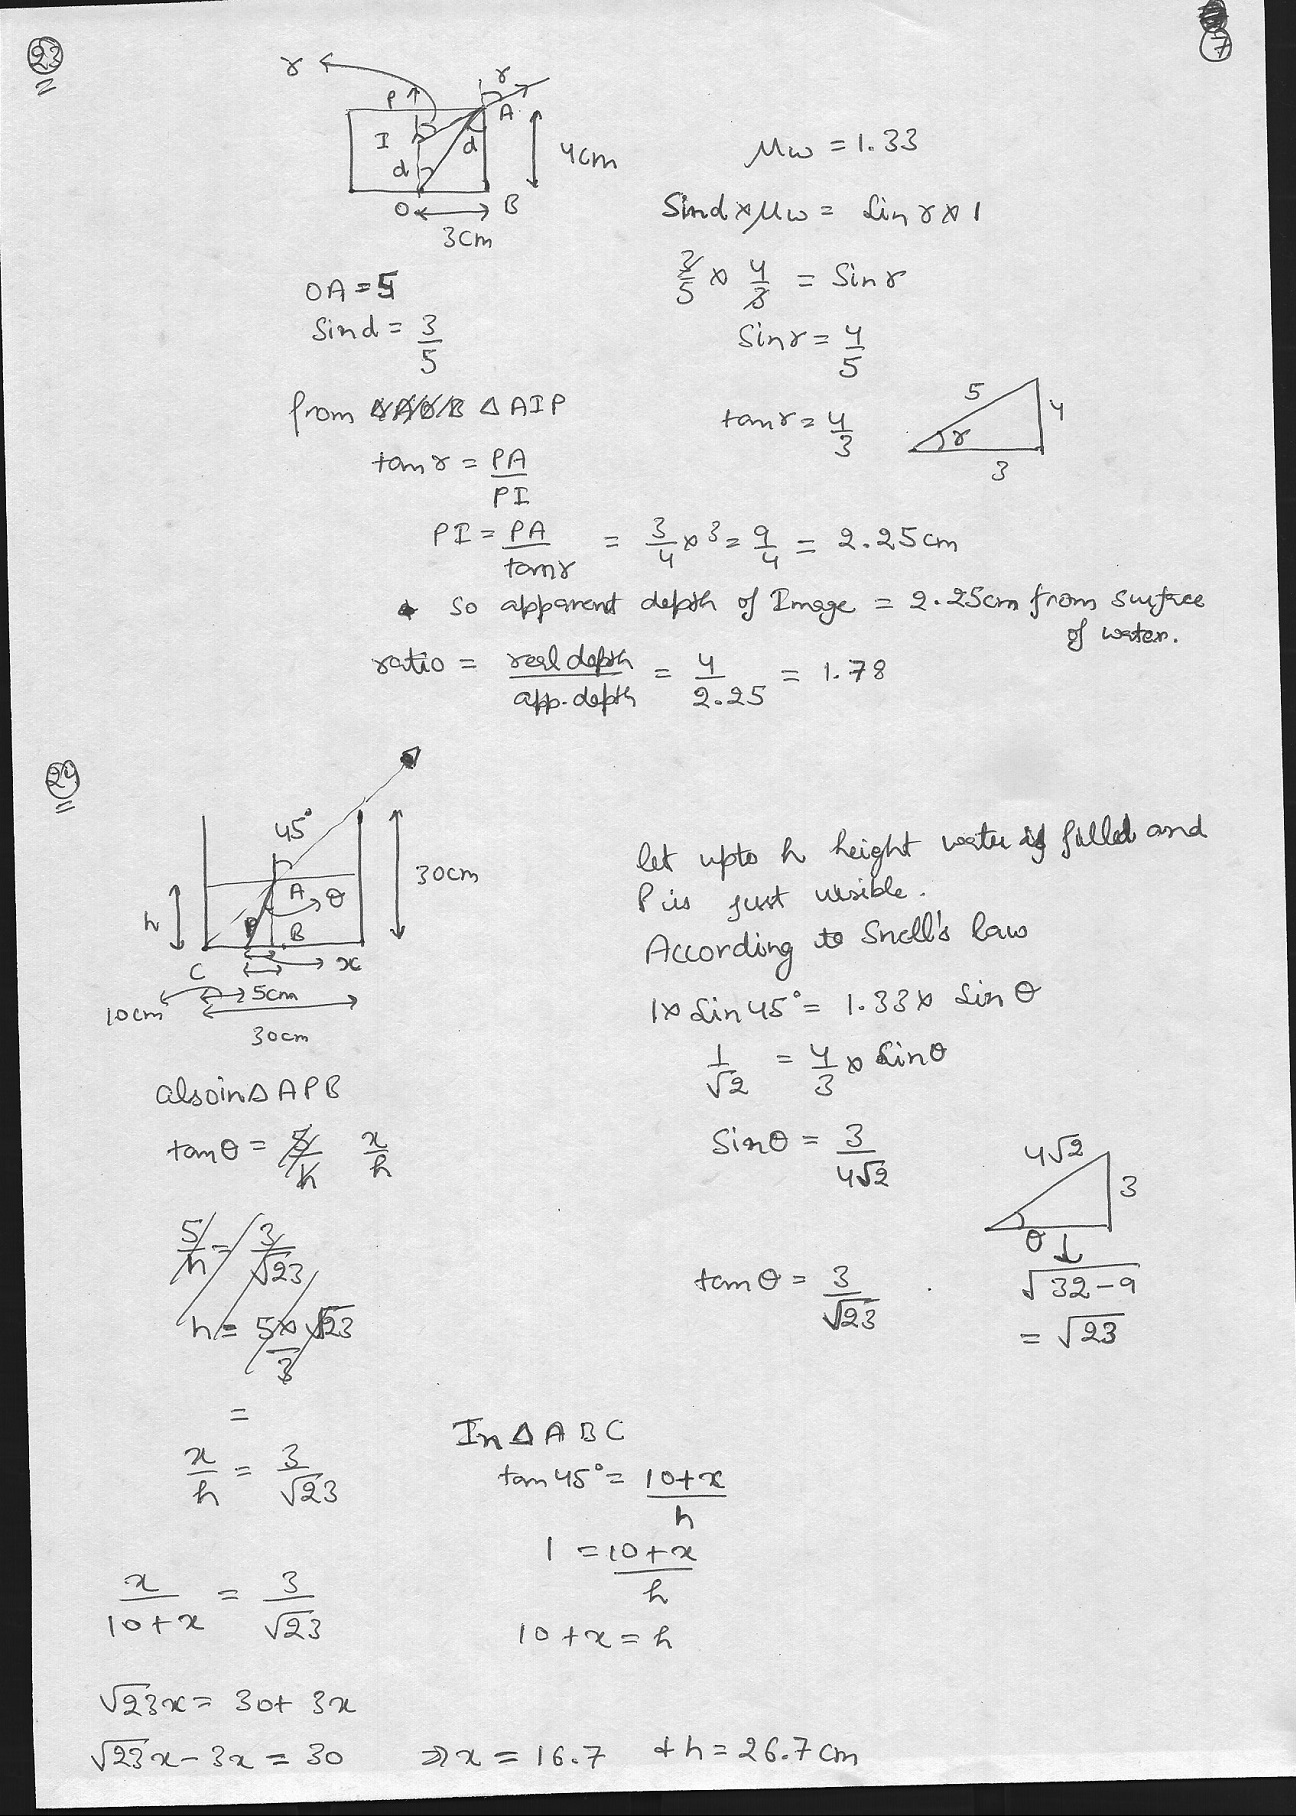 7
23
r
r
P
A
I
d
d
4cm
O
B
3cm
μw = 1.33
Sind × μw = Sin r × 1
3/5 × 4/3 = Sin r
OA = 5
Sind = 3/5
Sin r = 4/5
from △AOB △AIP
tan r = 4/3
5
4
r
3
tan r = PA/PI
PI = PA/tan r = 3/4 × 3 = 9/4 = 2.25cm
so apparent depth of Image = 2.25cm from surface
of water.
ratio = real depth/app. depth = 4/2.25 = 1.78
24
45°
30cm
A
θ
h
P
B
C
x
5cm
10cm
30cm
let upto h height water is filled and
P is just visible.
According to Snell's law
1 × Sin 45° = 1.33 × Sin θ
1/√2 = 4/3 × Sin θ
also in △APB
tan θ = 5/h x/h
Sin θ = 3/4√2
4√2
3
θ
5/h = 3/√23
tan θ = 3/√23
√32-9
= √23
h = 5×√23/3
=
x/h = 3/√23
In △ABC
tan 45° = 10+x/h
1 = 10+x/h
x/10+x = 3/√23
10+x = h
√23x = 30+ 3x
√23x - 3x = 30 ⇒ x = 16.7 & h = 26.7 cm